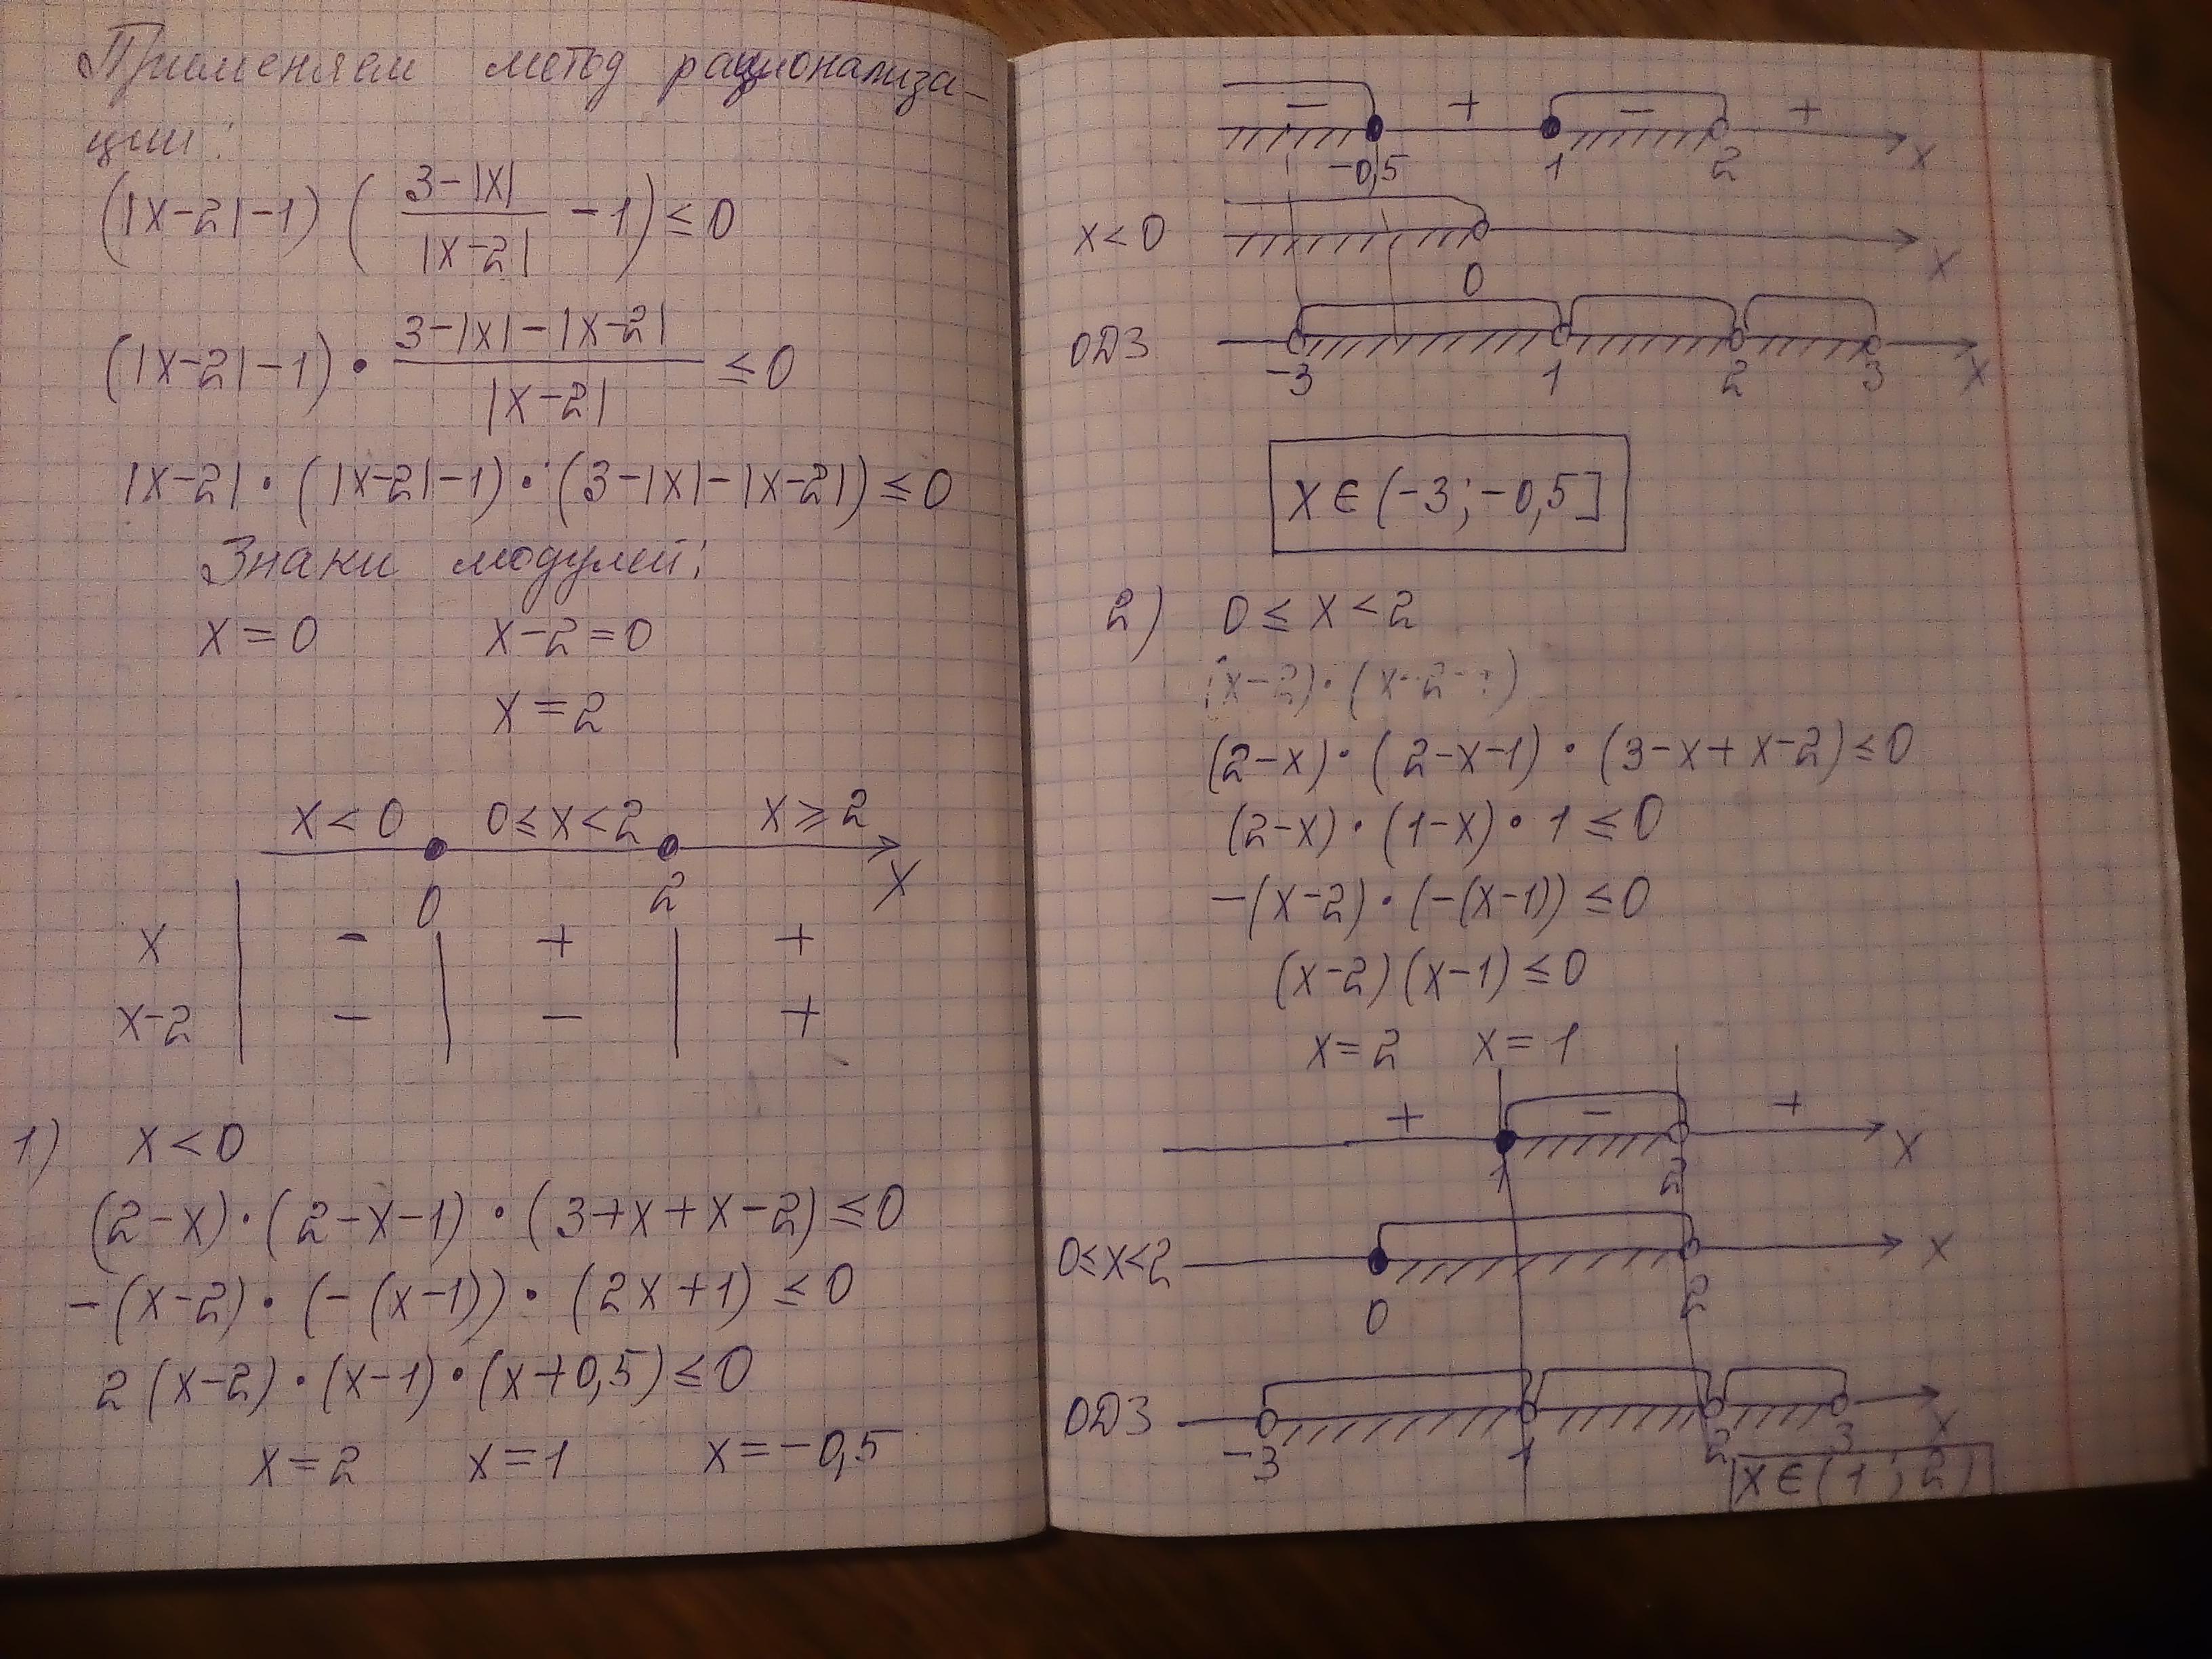 Применяем метод рационализа-
ции:
(|x-2|-1) ( (3-|x|)/|x-2| - 1) ≤ 0
(|x-2|-1) • (3-|x|-|x-2|)/|x-2| ≤ 0
|x-2| • (|x-2|-1) • (3-|x|-|x-2|) ≤ 0
Знаки модулей:
x = 0 x-2 = 0
x = 2
x < 0 0 ≤ x < 2 x ≥ 2
0 2 x
x - + +
x-2 - - +
1) x < 0
(2-x) • (2-x-1) • (3+x+x-2) ≤ 0
-(x-2) • (-(x-1)) • (2x+1) ≤ 0
2(x-2) • (x-1) • (x+0,5) ≤ 0
x = 2 x = 1 x = -0,5
- + - +
-0,5 1 2 x
x < 0
0 x
ОДЗ
-3 1 2 3 x
x ∈ (-3; -0,5]
2) 0 ≤ x < 2
(2-x) • (2-x-1) • (3-x+x-2) ≤ 0
(2-x) • (1-x) • 1 ≤ 0
-(x-2) • (-(x-1)) ≤ 0
(x-2)(x-1) ≤ 0
x = 2 x = 1
+ - +
1 2 x
0 ≤ x < 2
0 2 x
ОДЗ
-3 1 2 3 x
x ∈ (1; 2)